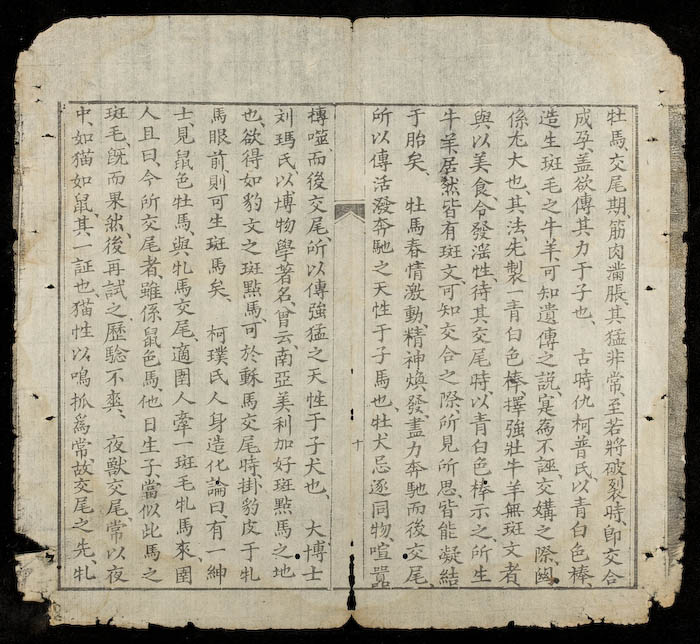 牡馬、交尾期、筋肉滿脹、其猛非常、至若將破裂時、卽交合
成孕、盖欲傳其力于子也、　古時仇柯普氏、以青白色棒、
造生斑毛之牛羊、可知遺傳之說、寔為不誣、交媾之際、
係尤大也、其法、先製一青白色棒、擇強壯牛羊無斑文者
與以美食、令發滛性、待其交尾時、以青白色棒示之、所生
牛羊、居然皆有斑文、可知交合之際、所見所思、皆能凝結
于胎矣、　牡馬春情激動、精神煥發、盡力奔馳而後交尾、
所以傳活潑奔馳之天性于子馬也、牡犬忌逐同物、喧囂
十
搏噬、而後交尾、所以傳強猛之天性于子犬也、　大博士
刘瑪氏、以博物學著名、曾云、南亞美利加好斑點馬之地
也、欲得如豹文之斑點馬、可於穌馬交尾時、掛豹皮于牝
馬眼前、則可生斑馬矣、　柯璞氏人身造化論曰、有一紳
士、見鼠色牡馬與牝馬交尾、適圉人牽一斑毛牝馬來、圉
人且曰、今所交尾者、雖係鼠色馬、他日生子、當似此馬之
斑毛、旣而果然、後再試之、歷驗不爽、　夜獸交尾、常以夜
中、如猫如鼠、其一証也、猫性以鳴抓爲常、故交尾之先、牝